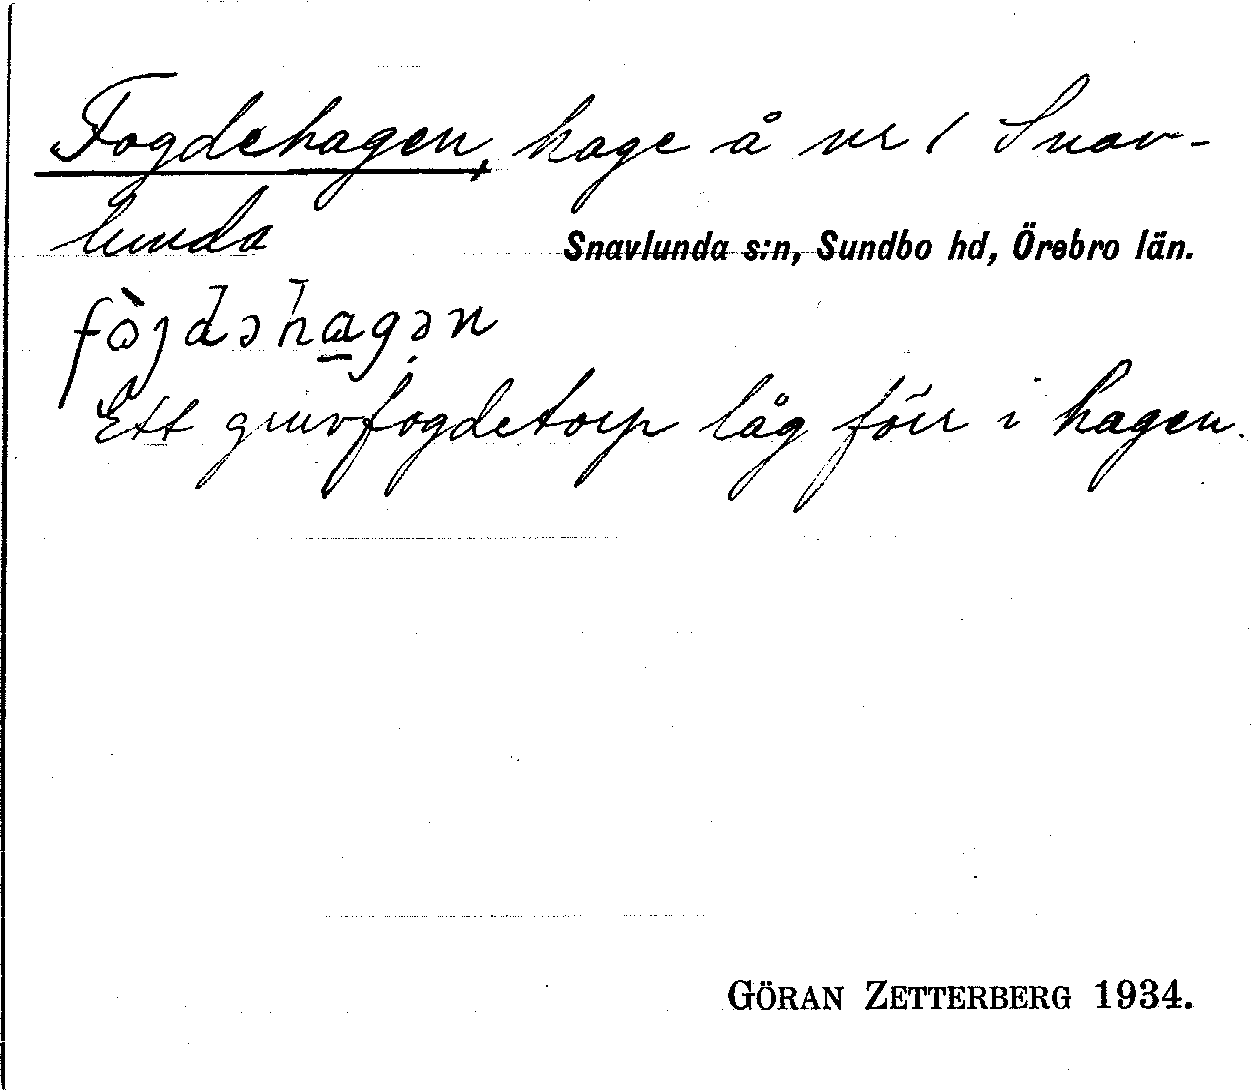 Fogdehagen, hage å nr 1 Snav-
lunda
Snavlunda s:n, Sundbo hd, Örebro län.
fòjdəhagən
Ett gruvfogdetorp låg förr i hagen.
GÖRAN ZETTERBERG 1934.